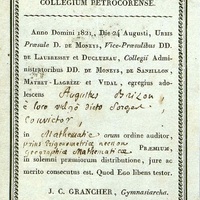 COLLEGIUM PETROCORENSE.
Anno Domini 1821, Die 24 Augusti, URBIS
Præsule D. DE MONEYS, Vice-Præsulibus DD.
DE LAUBRESSET et DUCLUZEAU, Collegii Admi-
nistratoribus DD. DE MONEYS, DE SANZILLON,
MATRET-LAGRÈZE et VIDAL, egregius ado-
lescens Augustus Brizon
è loco
convictor
in Mathematicæ orum ordine auditor,
Trigonometriæ necnon
geographia Mathematica PRÆMIUM,
in solemni præmiorum distributione, jure ac
merito consecutus est. Quod Ego libens testor.
J. C. GRANCHER, Gymnasiarcha.